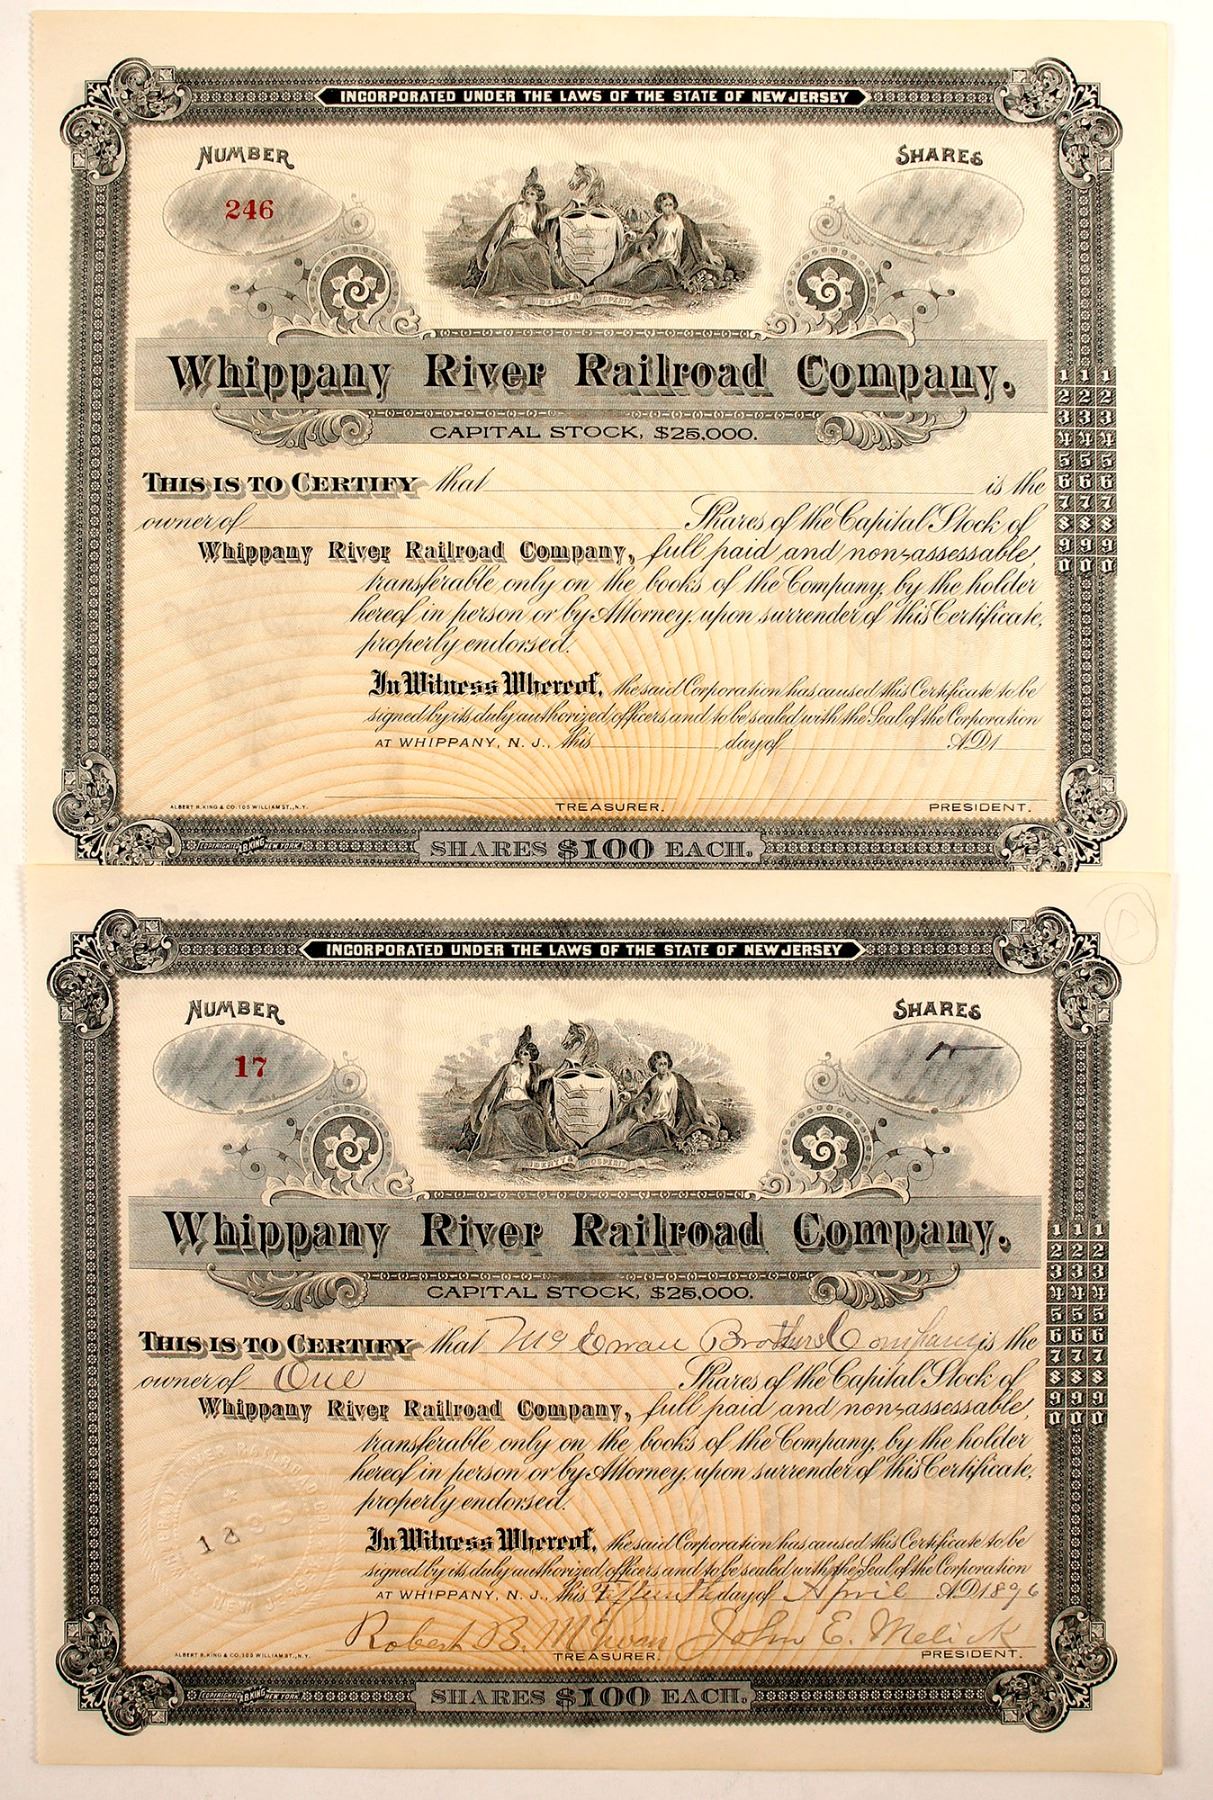 INCORPORATED UNDER THE LAWS OF THE STATE OF NEW JERSEY
NUMBER
SHARES
246
LIBERTY & PROSPERITY
Whippany River Railroad Company.
CAPITAL STOCK, $25,000.
THIS IS TO CERTIFY that is the
owner of Shares of the Capital Stock of
Whippany River Railroad Company, full paid and non-assessable,
transferable only on the books of the Company, by the holder
hereof in person or by Attorney, upon surrender of this Certificate,
properly endorsed.
In Witness Whereof, the said Corporation has caused this Certificate to be
signed by its duly authorized officers and to be sealed with the Seal of the Corporation
AT WHIPPANY, N. J., this day of A.D. 1
ALBERT B. KING & CO. 105 WILLIAM ST., N.Y.
TREASURER.
PRESIDENT.
COPYRIGHTED B. KING NEW YORK
SHARES $100 EACH.
1 1 1
2 2 2
3 3 3
4 4 4
5 5 5
6 6 6
7 7 7
8 8 8
9 9 9
0 0 0
INCORPORATED UNDER THE LAWS OF THE STATE OF NEW JERSEY
NUMBER
SHARES
17
LIBERTY & PROSPERITY
Whippany River Railroad Company.
CAPITAL STOCK, $25,000.
THIS IS TO CERTIFY that McEwan Brothers Company is the
owner of One Shares of the Capital Stock of
Whippany River Railroad Company, full paid and non-assessable,
transferable only on the books of the Company, by the holder
hereof in person or by Attorney, upon surrender of this Certificate,
properly endorsed.
In Witness Whereof, the said Corporation has caused this Certificate to be
signed by its duly authorized officers and to be sealed with the Seal of the Corporation
AT WHIPPANY, N. J., this Fifteenth day of April A.D. 1896
Robert B. McEwan John E. Melick
ALBERT B. KING & CO. 105 WILLIAM ST., N.Y.
TREASURER.
PRESIDENT.
COPYRIGHTED B. KING NEW YORK
SHARES $100 EACH.
1 1 1
2 2 2
3 3 3
4 4 4
5 5 5
6 6 6
7 7 7
8 8 8
9 9 9
0 0 0
RIVER RAILROAD CO.
NEW JERSEY